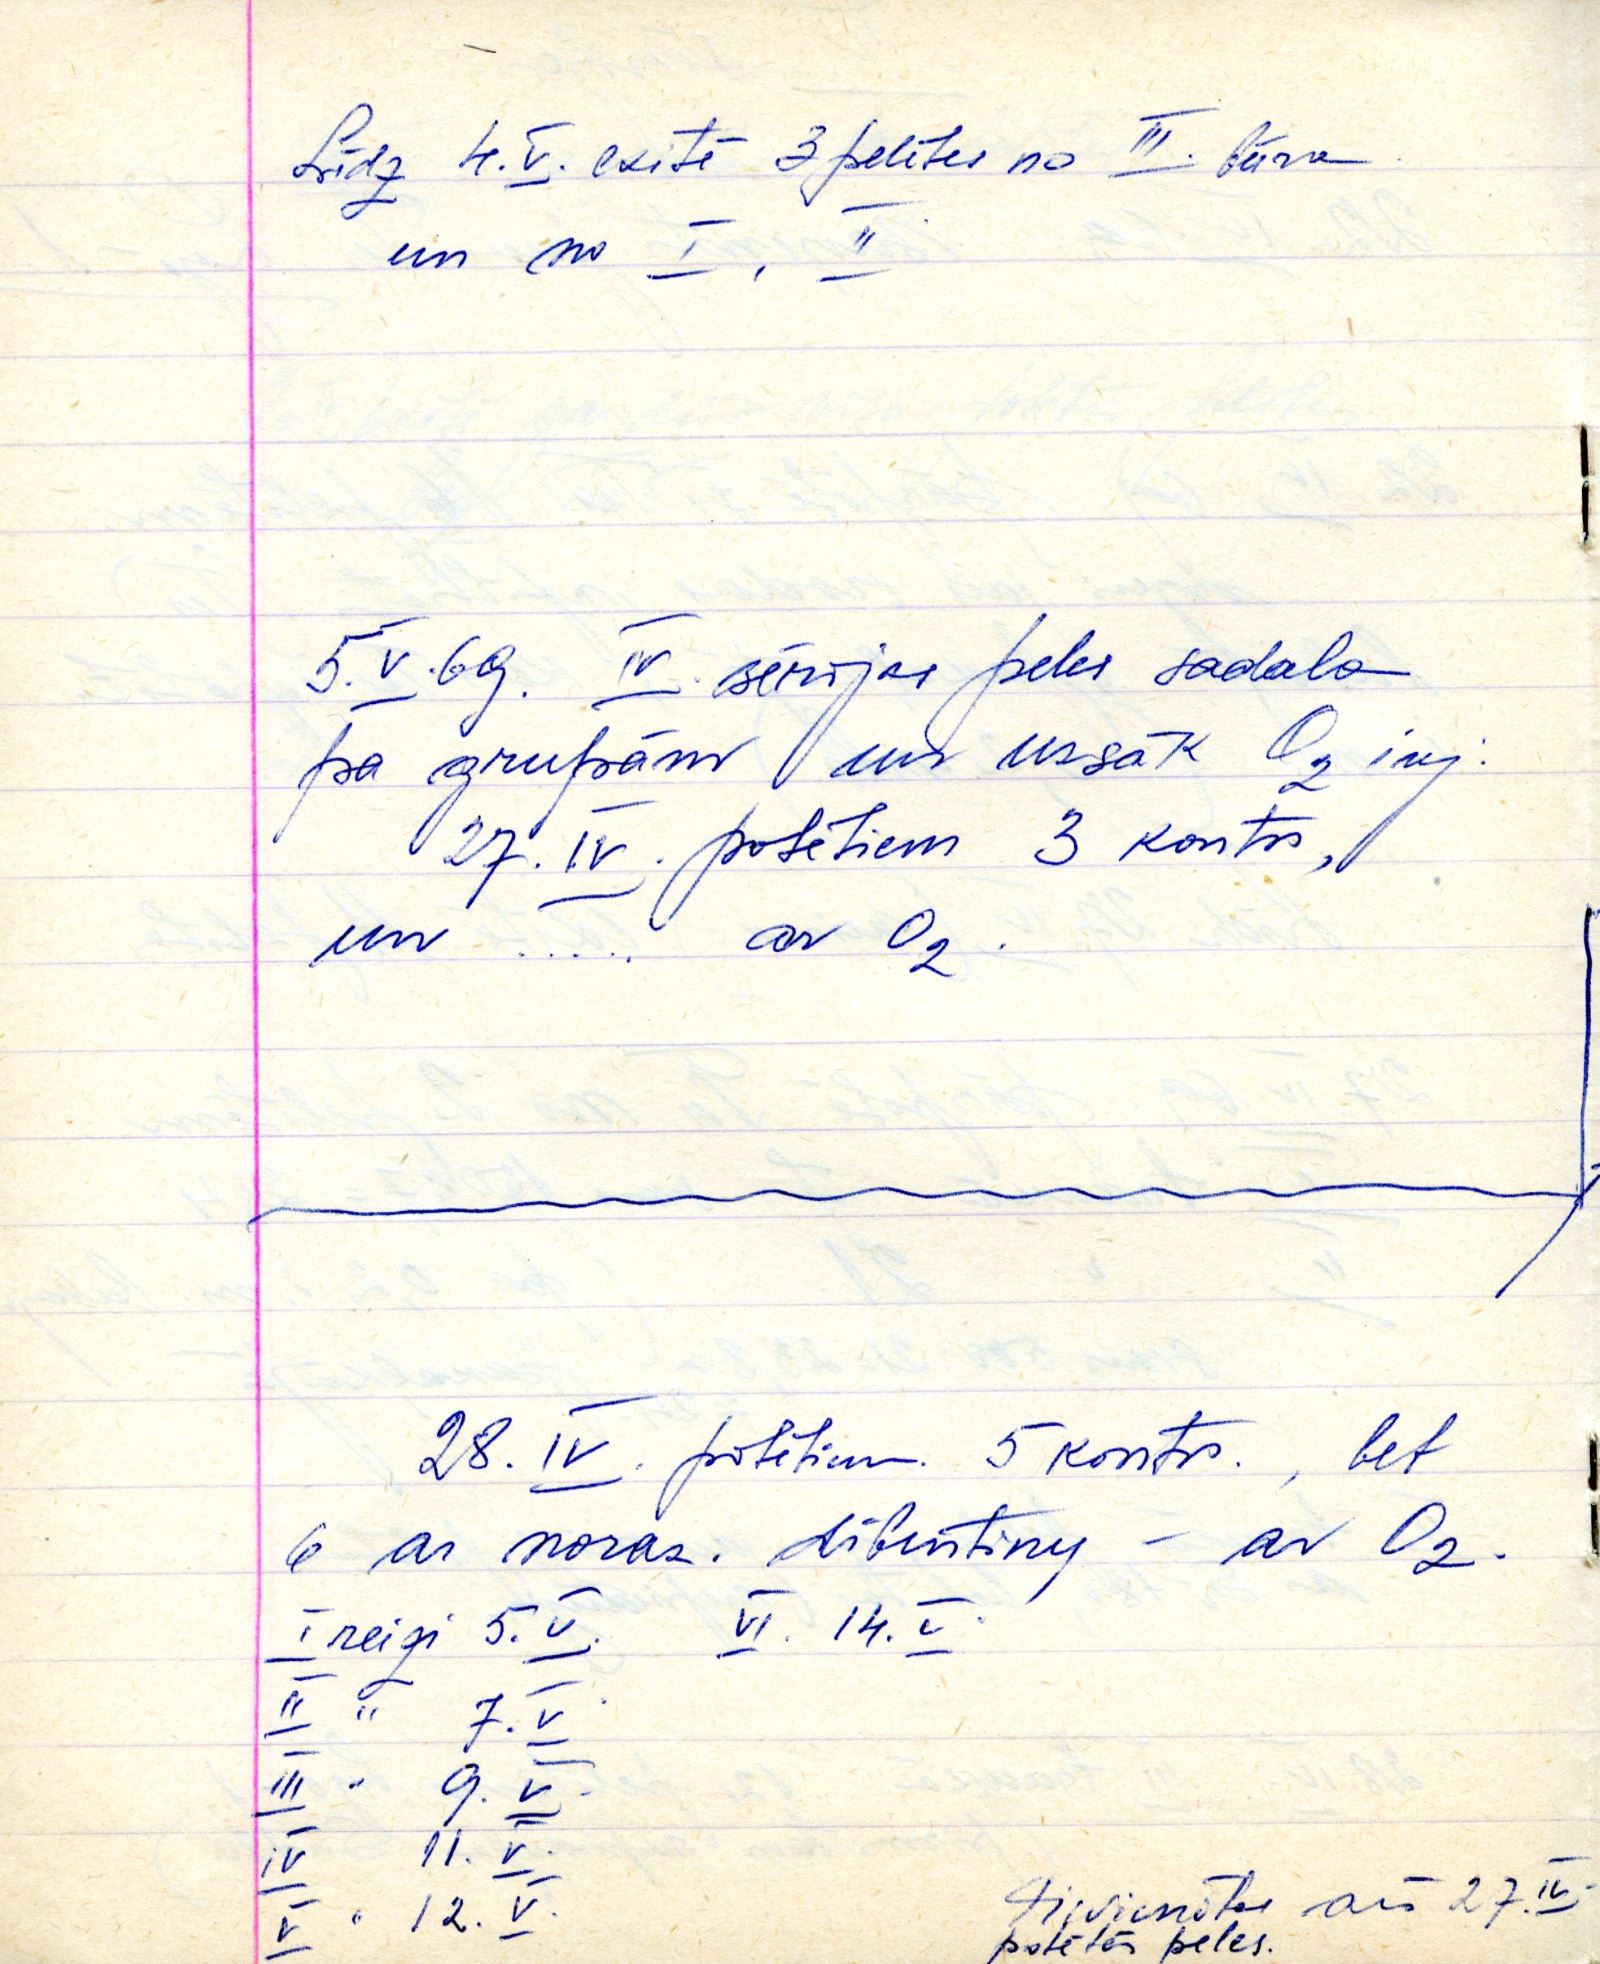 Līdz 4.V. exitē 3 pelītes no III. būra
un no I, II
5.V.69. IV. sērijas peles sadala
pa grupām un uzsāk O2 inj.
27.IV. potētiem 3 kontr,
un ..... ar O2.
28.IV. potētiem 5 kontr., bet
6 ar noraz. - ar O2.
I reizi 5.V. VI. 14.V.
II " 7.V.
III " 9.V.
IV 11.V.
V " 12.V.
arī 27.IV.
potētās peles.